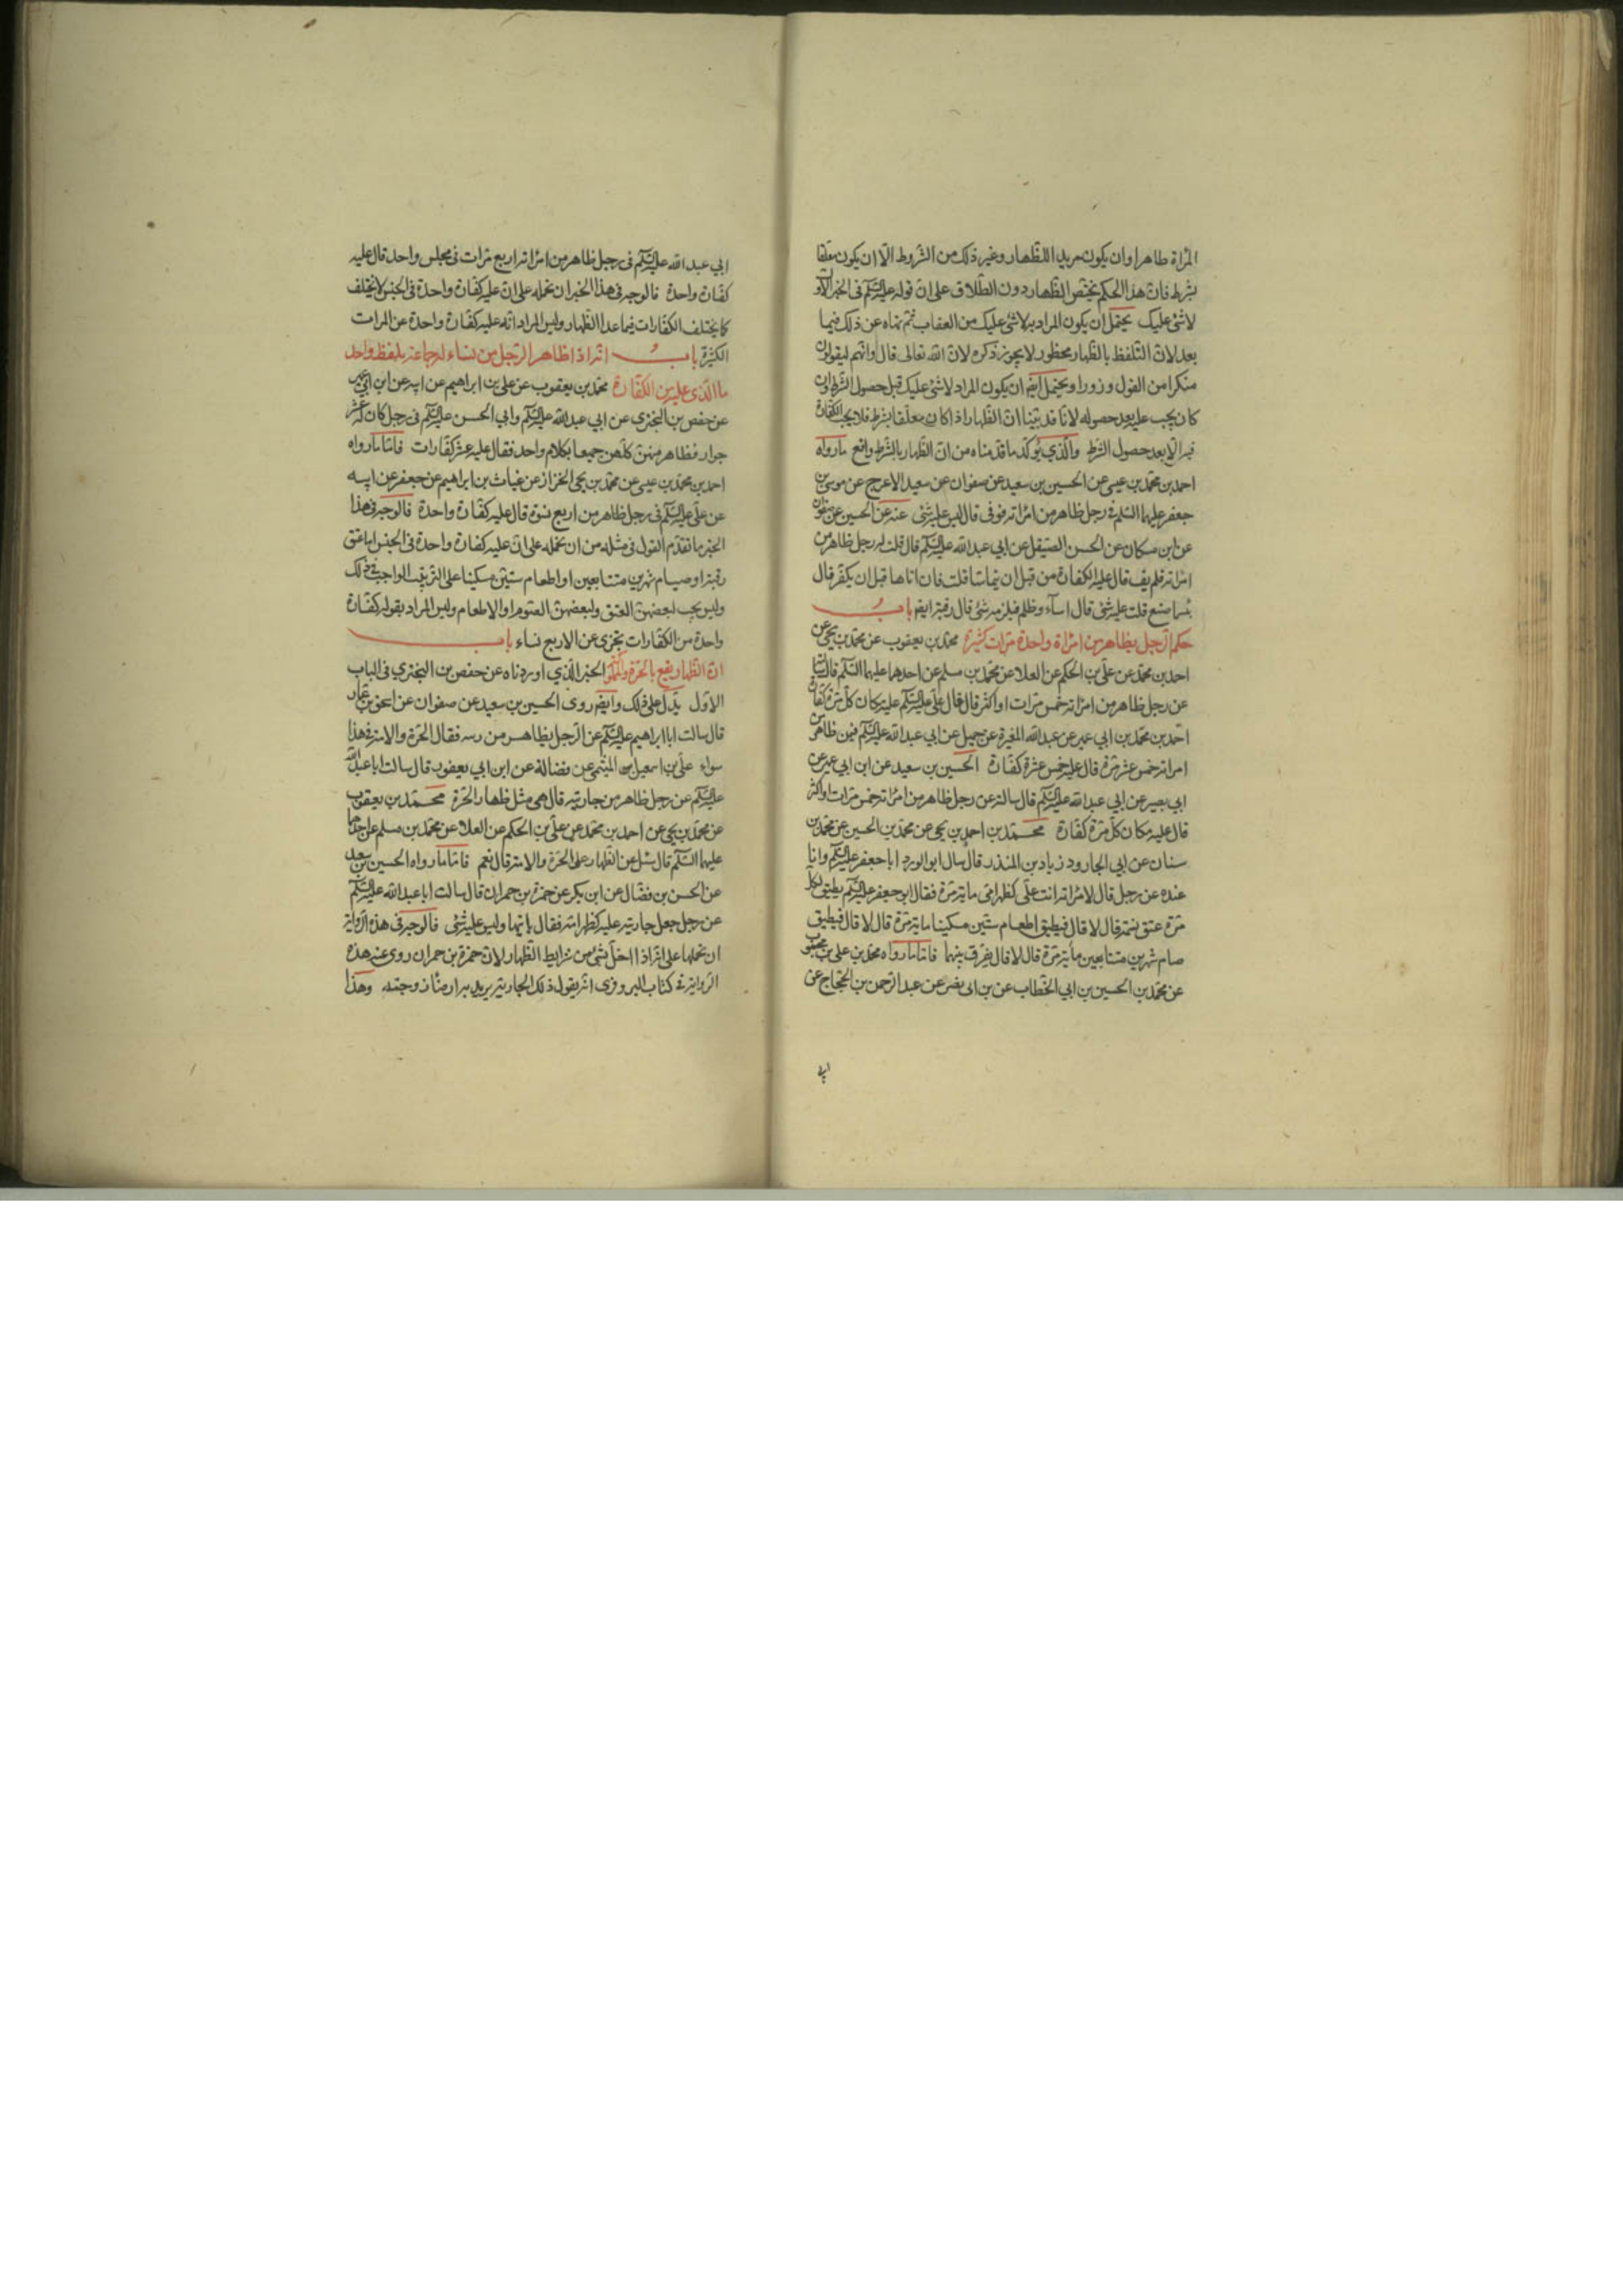 المرأة طاهرا وان يكون مريدا للظهار وغير ذلك من الشروط الا ان يكون معلقا
بشرط فان هذا الحكم يختص الظهار دون الطلاق على ان قوله عليه السلم في الخبر الاول
لا شئ عليك يحتمل ان يكون المراد به لا شئ عليك من العقاب ثم نهاه عن ذلك فيما
بعد لان التلفظ بالظهار محظور لا يجوز ذكره لان الله تعالى قال وانهم ليقولون
منكرا من القول وزورا ويحتمل ايضا ان يكون المراد لا شئ عليك قبل حصول الشرط وان
كان يجب عليه بعد حصوله لانا قد بينا ان الظهار اذا كان معلقا بشرط فلا يجب الكفارة
فيه الا بعد حصول الشرط والذي يؤكد ما قدمناه من ان الظهار بالشرط واقع ما رواه
احمد بن محمد بن عيسى عن الحسين بن سعيد عن صفوان عن سعيد الاعرج عن موسى بن
جعفر عليهما السلم في رجل ظاهر من امرأته فوفى قال ليس عليه شئ عنه عن الحسين عن صفوان
عن ابن مسكان عن الحسن الصيقل عن ابي عبد الله عليه السلم قال قلت له رجل ظاهر من
امرأته فلم يف قال عليه الكفارة من قبل ان يتماسا قلت فان اتاها قبل ان يكفر قال
بئسما صنع قلت عليه شئ قال اساء وظلم قلت فيلزمه شئ قال رقبة ايضا باب
حكم الرجل يظاهر من امرأة واحدة مرات كثيرة محمد بن يعقوب عن محمد بن يحيى عن
احمد بن محمد عن علي بن الحكم عن العلا عن محمد بن مسلم عن احدهما عليهما السلم قال سألته
عن رجل ظاهر من امرأته خمس مرات او اكثر قال قال علي عليه السلم عليه مكان كل مرة كفارة
احمد بن محمد بن ابي عمير عن عبد الله المغيرة عن جميل عن ابي عبد الله عليه السلم فيمن ظاهر من
امرأته خمس عشر مرة قال عليه خمس عشرة كفارة الحسين بن سعيد عن ابن ابي عمير عن
ابي بصير عن ابي عبد الله عليه السلم قال سالته عن رجل ظاهر من امرأته خمس مرات او اكثر
قال عليه مكان كل مرة كفارة محمد بن احمد بن يحيى عن محمد بن الحسين عن محمد بن
سنان عن ابي الجارود زياد بن المنذر قال سال ابو الورد ابا جعفر عليه السلم وانا
عنده عن رجل قال لامرأته انت علي كظهر امي مأية مرة فقال ابو جعفر عليه السلم يطيق لكل
مرة عتق نسمة قال لا قال فيطيق اطعام ستين مسكينا ماية مرة قال لا قال فيطيق
صيام شهرين متتابعين مأية مرة قال لا قال يفرق بينهما فاما ما رواه محمد بن علي بن محبوب
عن محمد بن الحسين بن ابي الخطاب عن بن ابي نصر عن عبد الرحمن بن الحجاج عن
ابي
ابي عبد الله عليه السلم في رجل ظاهر من امرأته اربع مرات في مجلس واحد قال عليه
كفارة واحدة فالوجه في هذا الخبر ان نحمله على ان عليه كفارة واحدة في الجنس لا يختلف
كما يختلف الكفارات فيما عدا الظهار وليس المراد انه عليه كفارة واحدة عن المرات
الكثيرة باب انه اذا ظاهر الرجل من نساء له جماعة بلفظ واحد
ما الذي عليه من الكفارة محمد بن يعقوب عن علي بن ابراهيم عن ابيه عن ابن ابي عمير
عن حفص بن البختري عن ابي عبد الله عليه السلم وابي الحسن عليه السلم في رجل كان له عشر
جوار فظاهر منهن كلهن جميعا بكلام واحد فقال عليه عشر كفارات فاما ما رواه
احمد بن محمد بن عيسى عن محمد بن يحيى الخزاز عن غياث بن ابراهيم عن جعفر عن ابيه
عن علي عليه السلم في رجل ظاهر من اربع نسوة قال عليه كفارة واحدة فالوجه في هذا
الخبر ما تقدم القول في مثله من ان نحمله على ان عليه كفارة واحدة في الجنس اما عتق
رقبة او صيام شهرين متتابعين او اطعام ستين مسكينا على الترتيب الواجب في ذلك
وليس يجب لبعضهن العتق ولبعضهن الصوم او الاطعام وليس المراد بقوله كفارة
واحدة من الكفارات يجزي عن الاربع نساء باب
ان الظهار يقع بالحرة والمملوكة الخبر الذي اوردناه عن حفص بن البختري في الباب
الاول يدل على ذلك وايضا روى الحسين بن سعيد عن صفوان عن اسحق بن عمار
قال سالت ابا ابراهيم عليه السلم عن الرجل يظاهر من فقال الحرة والامة في هذا
سواء علي بن اسمعيل الميثمي عن فضالة عن ابن ابي يعفور قال سالت ابا عبد الله
عليه السلم عن رجل ظاهر من جاريته قال هي مثل ظهار الحرة محمد بن يعقوب
عن محمد بن يحيى عن احمد بن محمد عن علي بن الحكم عن العلا عن محمد بن مسلم عن احدهما
عليهما السلم قال سئل عن الظهار على الحرة والامة قال نعم فاما ما رواه الحسين بن سعيد
عن الحسن بن فضال عن ابن بكير عن حمزة بن حمران قال سالت ابا عبد الله عليه السلم
عن رجل جعل جاريته عليه كظهر امه فقال ياتيها وليس عليه شئ فالوجه في هذه الرواية
ان نحملها على انه اذا اخل بشئ من شرايط الظهار لان حمزة بن حمران روى عنه هذه
الرواية في كتاب البزوفري انه يقول ذلك لجاريته يريد به ارضاء زوجته وهذا